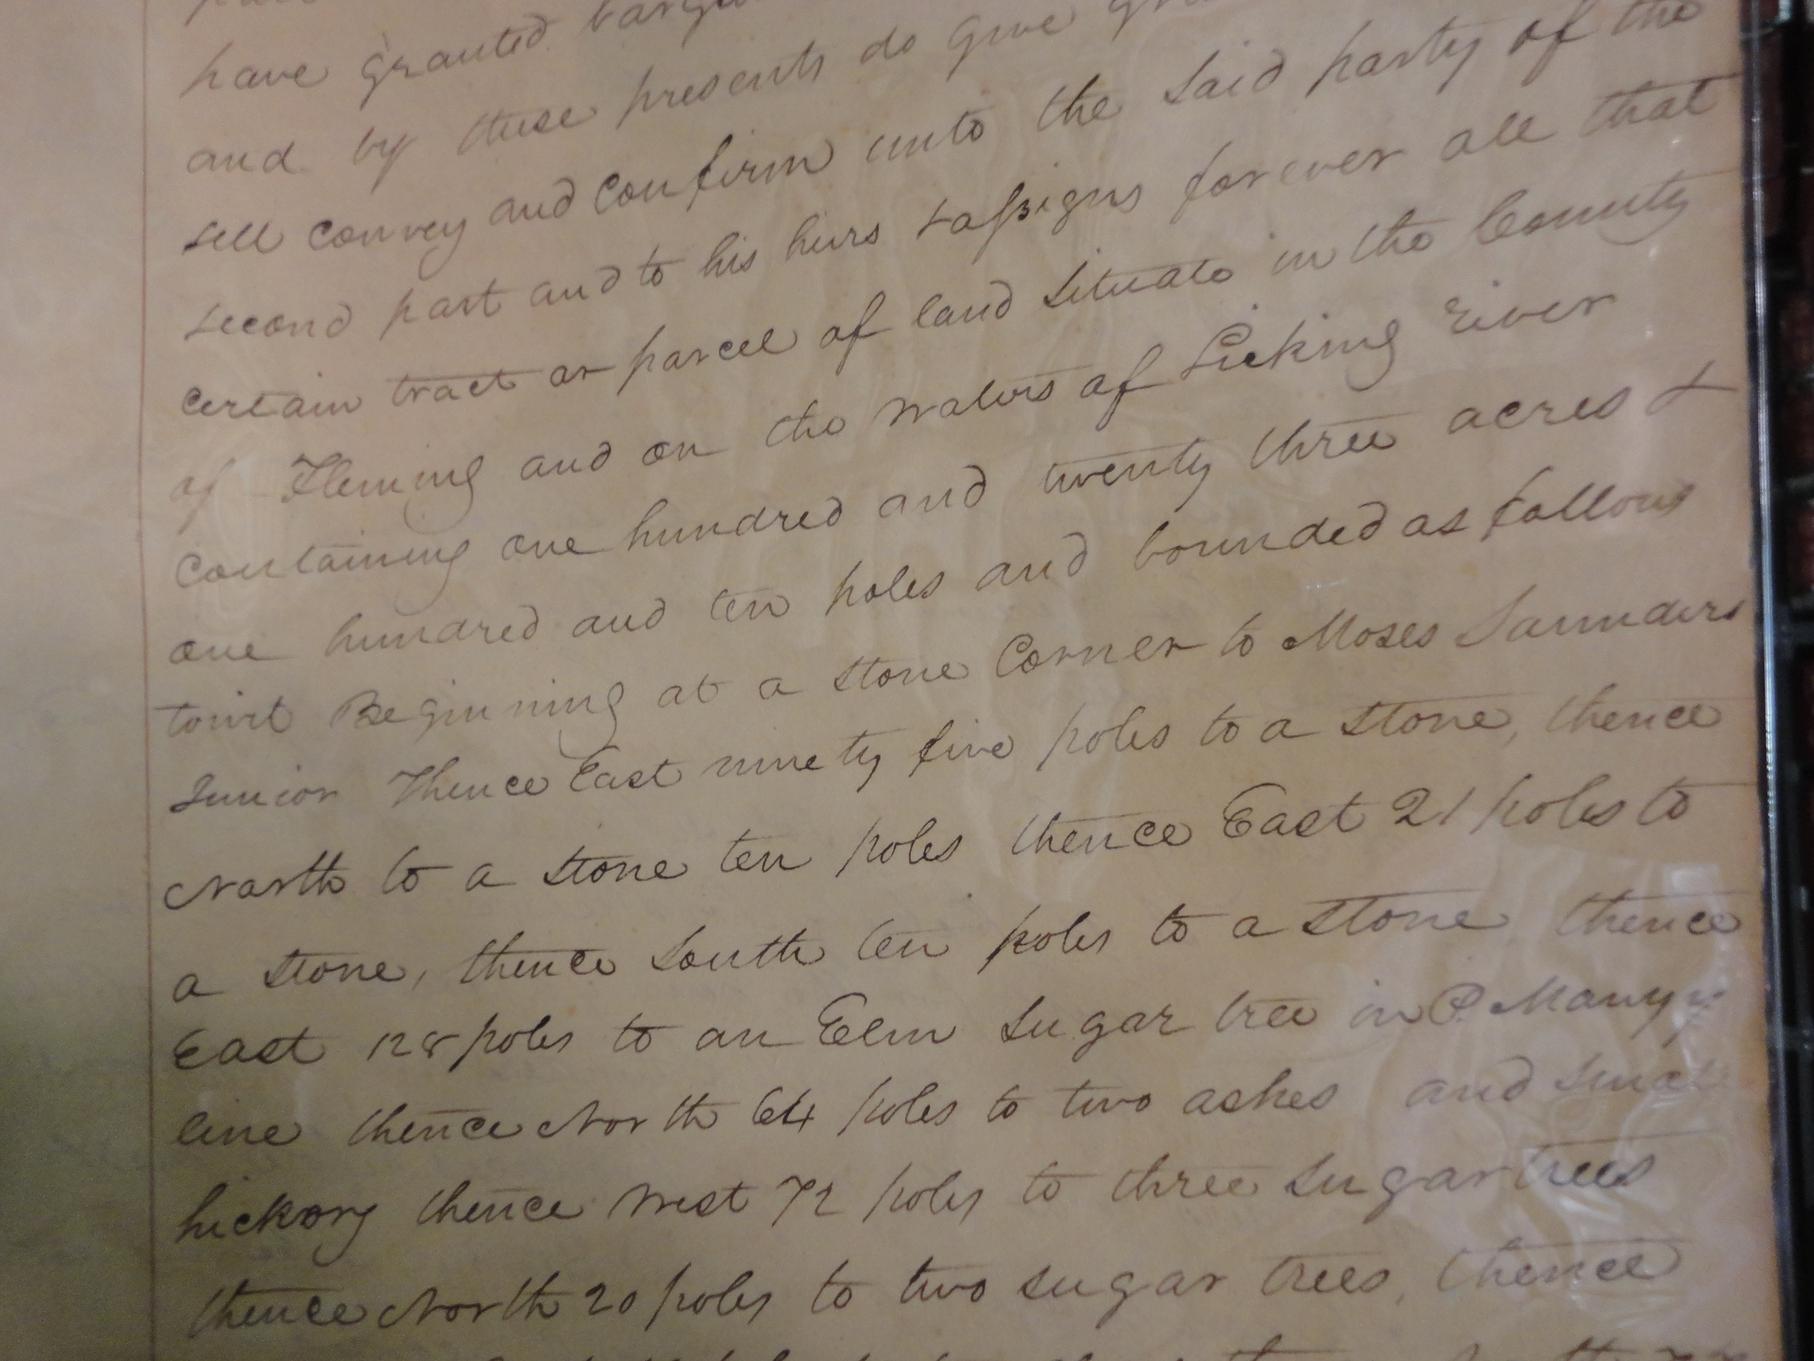 have granted
and by these presents do give
sell convey and confirm unto the said party of the
second part and to his heirs & assigns forever all that
certain tract or parcel of land situate in the County
of Fleming and on the waters of Licking river
Containing one hundred and twenty three acres &
one hundred and ten poles and bounded as follows
towit Beginning at a stone Corner to Moses Saunders
Junior Thence East ninety five poles to a stone, thence
North to a stone ten poles thence East 21 poles to
a stone, thence South ten poles to a stone thence
East 128 poles to an Elm sugar tree in
line thence North 64 poles to two ashes and small
hickory thence West 72 poles to three sugar trees
thence North 20 poles to two sugar trees, thence